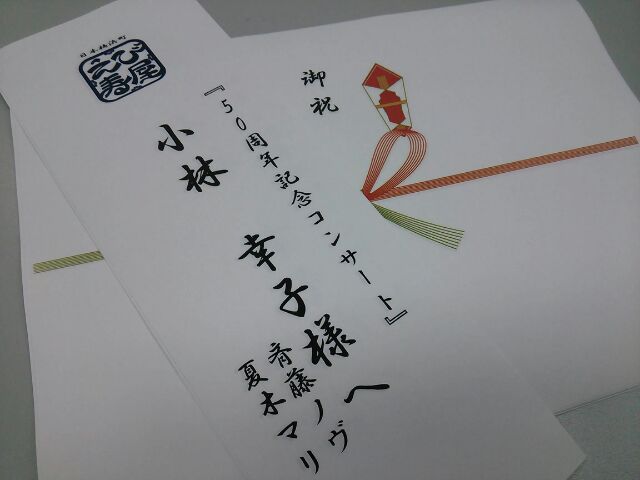 御祝
日本橋浜町
えび寿屋
『50周年記念コンサート』
小林 幸子様へ
斉藤ノヴ
夏木マリ